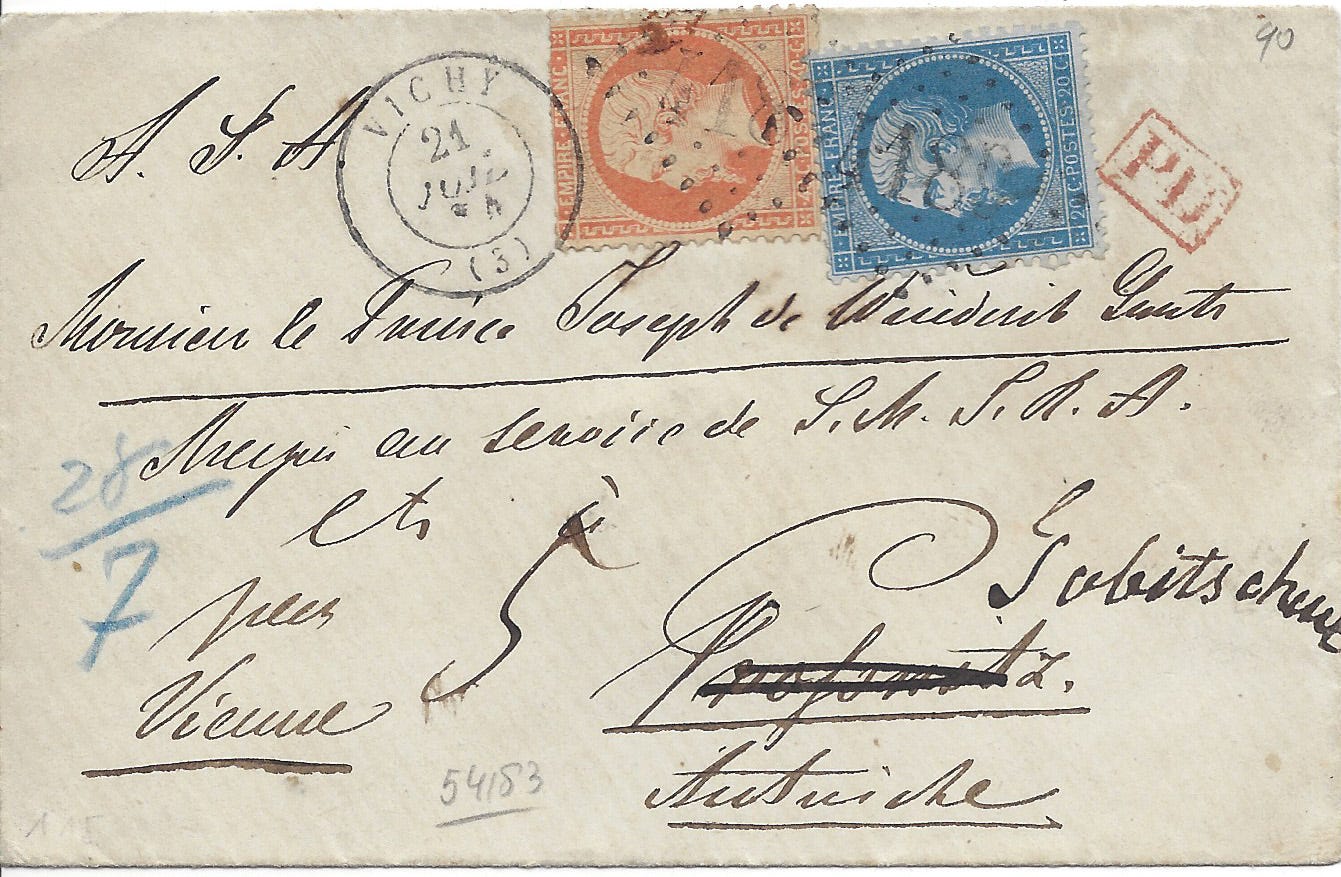 90
A. S. A.
VICHY
21
JUIL
(3)
EMPIRE FRANC
POSTES
EMPIRE FRANC
20 C POSTES 20 C
P.D.
Monsieur le Prince Joseph de Windisch Graetz
au service de S. M. I. R. A.
etc à
28
7
5
Gabitschau
par
Vienne
Autriche
54183
115